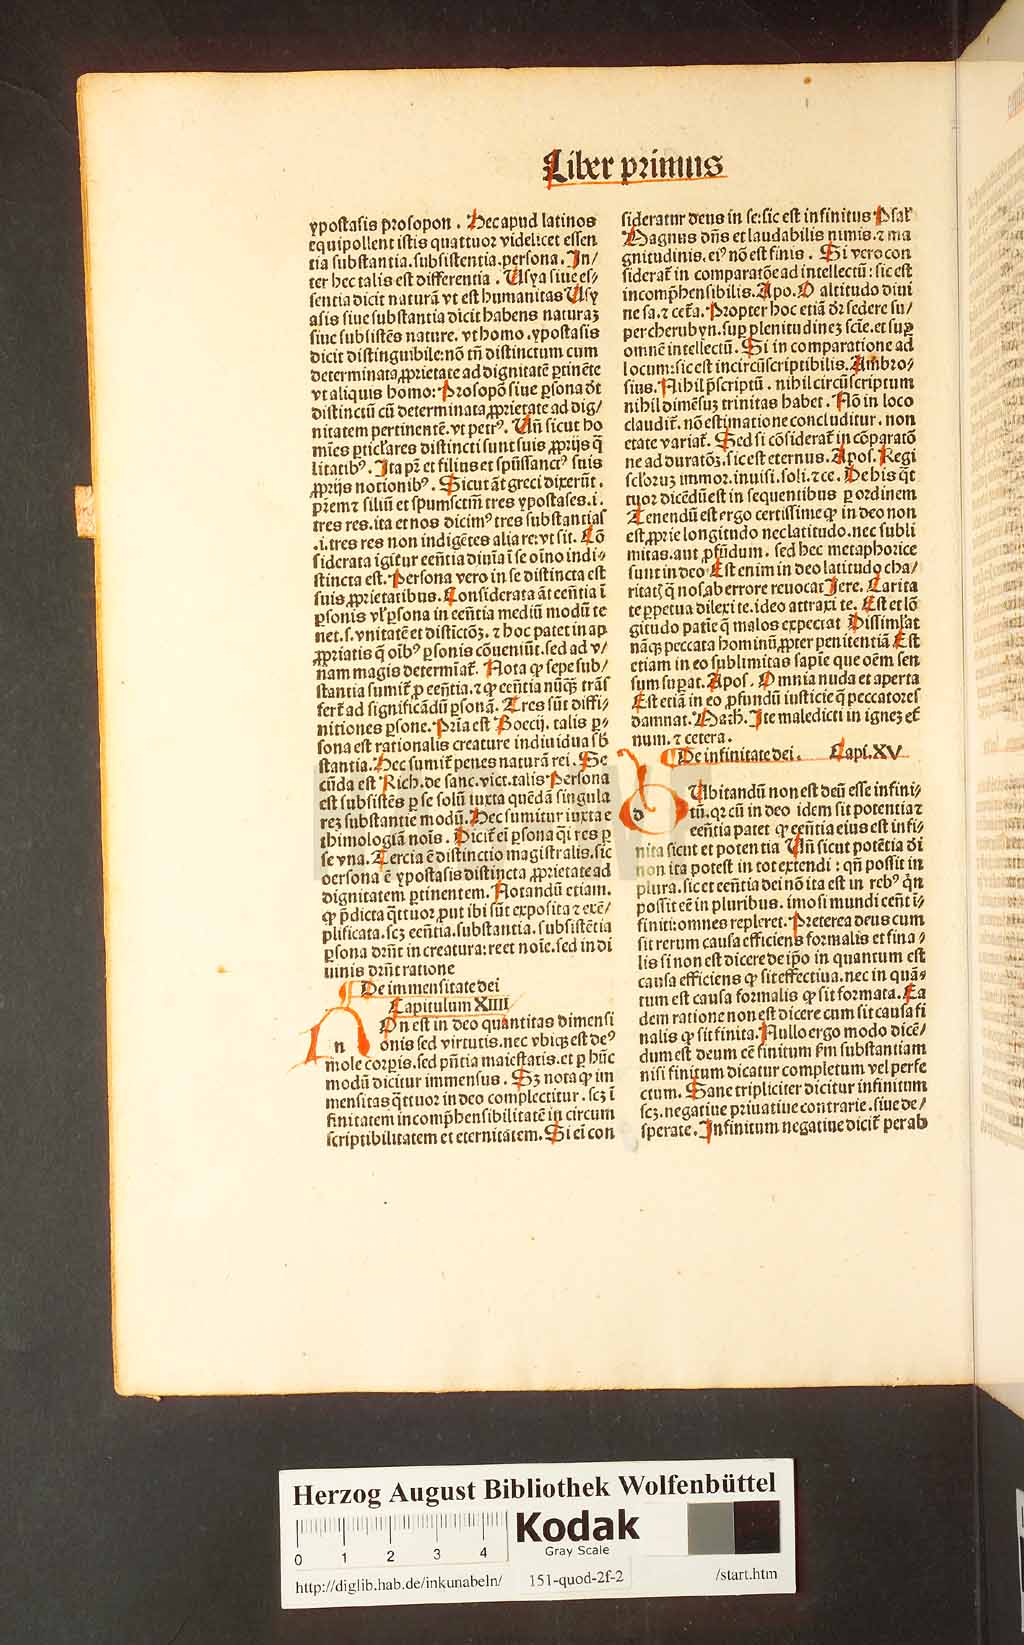 Liber primus
ypostasis prosopon . Hec apud latinos
equipollent istis quattuor videlicet essen
tia substantia.subsistentia.persona.In/
ter hec talis est differentia . Usya siue es/
sentia dicit naturã vt est humanitas Usy
asis siue substantia dicit habens naturaȝ
siue subsistẽs nature. vt homo.ypostasis
dicit distinguibile:nõ tñ distinctum cum
determinata ꝓprietate ad dignitatẽ ꝑtinẽte
vt aliquis homo: Prosopõ siue ꝑsona dr̃t
distinctũ cũ determinata ꝓprietate ad dig/
nitatem pertinentẽ.vt petrꝰ. Uñ sicut ho
mĩes ꝑticl̃ares distincti sunt suis ꝓprijs q̃
litatibꝰ. Ita pr̃ et filius et spũssanctꝰ suis
ꝓprijs notionibꝰ. Sicut ãt greci dixerũt.
pr̃em ⁊ filiũ et spumsctm̃ tres ypostases.i.
tres res.ita et nos dicimꝰ tres substantias
.i.tres res non indigẽtes alia re:vt sit. Cõ
siderata igitur eẽntia diuĩa ĩ se oĩno indi/
stincta est. Persona vero in se distincta est
suis ꝓprietatibus. Considerata ãt eẽntia ĩ
ꝑsonis vl̃ ꝑsona in eẽntia mediũ modũ te
net.s.vnitatẽ et distictõȝ.⁊ hoc patet in ap
ꝓpriatis q̃ oĩbꝰ ꝑsonis cõueniũt.sed ad v/
nam magis determĩat̃. Nota ꝙ sepe sub/
stantia sumit̃ ꝓ eẽntia.⁊ ꝙ eẽntia nũq̃ȝ trãs
fert̃ ad significãdũ ꝑsonã. Tres sũt diffi/
nitiones ꝑsone. Pria est Boecij. talis ꝑ/
sona est rationalis creature indiuidua sb̃
stantia. Hec sumit̃ penes naturã rei. Se
cũda est Rich.de sanc.vict.talis Persona
est subsistẽs ꝑ se solũ iuxta quẽdã singula
reȝ substantie modũ. Hec sumitur iuxta e
thimologiã nois̃. Dicit̃ ei ꝑsona q̃i res ꝑ
se vna. Tercia ẽ distinctio magistralis.sic
persona ẽ ypostasis distincta ꝓprietate ad
dignitatem ꝑtinentem. Notandũ etiam.
ꝙ p̃dicta q̃ttuor ꝓut ibi sũt exposita ⁊ exẽ/
plificata.scȝ eẽntia.substantia.subsistẽtia
ꝑsona dr̃nt in creatura:re et noĩe.sed in di
uinis dr̃nt ratione
De immensitate dei
Capitulum XIIII
n On est in deo quantitas dimensi
onis sed virtutis.nec vbiqȝ est deꝰ
mole corꝑis.sed pñtia maiestatis.et ꝑ hũc
modũ dicitur immensus . Sȝ nota ꝙ im
mensitas q̃ttuor in deo complectitur .scȝ ĩ
finitatem incomp̃hensibilitatẽ in circum
scriptibilitatem et eternitatem. Si eĩ con
sideratur deus in se:sic est infinitus Psal̃
Magnus dñs et laudabilis nimis.⁊ ma
gnitudinis.eiꝰ nõ est finis . Si vero con
siderat̃ in comparatõe ad intellectũ: sic est
incomp̃hensibilis. Apo. O altitudo diui
ne sa.⁊ cet̃a. Propter hoc etiã dr̃ sedere su/
per cherubyn.suꝑ plenitudineȝ scĩe.et suꝑ
omnẽ intellectũ. Si in comparatione ad
locum:sic est incircũscriptibilis. Ambro/
sius. Nihil p̃scriptũ . nihil circũscriptum
nihil dimẽsuȝ trinitas habet . Nõ in loco
claudit̃. nõ estimatione concluditur . non
etate variat̃. Sed si cõsiderat̃ in cõparatõ
ne ad duratõȝ.sic est eternus. Apos. Regi
scl̃oruȝ immor.inuisi.soli.⁊ce. De his q̃t
tuor dicẽdũ est in sequentibus ꝑ ordinem
Tenendũ est ergo certissime ꝙ in deo non
est ꝓprie longitudo nec latitudo.nec subli
mitas.aut ꝓfũdum . sed hec metaphorice
sunt in deo Est enim in deo latitudo cha/
ritatꝭ q̃ nos ab errore reuocat Jere. Carita
te ꝑpetua dilexi te.ideo attraxi te. Est et lõ
gitudo patĩe q̃ malos expectat Dissimĩat
nãqȝ peccata hominũ ꝓpter penitentiã Est
etiam in eo sublimitas sapĩe que oẽm sen
sum suꝑat. Apos . Omnia nuda et aperta
Est etiã in eo ꝓfundũ iusticie q̃ peccatores
damnat. Math. Ite maledicti in igneȝ et̃
num.⁊ cetera.
De infinitate dei. Capi. XV
d Ubitandũ non est deũ esse infini/
tũ.qȝ cũ in deo idem sit potentia ⁊
eẽntia patet ꝙ eẽntia eius est infi/
nita sicut et potentia Uñ sicut potẽtia di
non ita potest in tot extendi : qñ possit in
plura.sic et eẽntia dei nõ ita est in rebꝰ q̃n
possit eẽ in pluribus. imo si mundi eẽnt ĩ/
finiti:omnes repleret. Preterea deus cum
sit rerum causa efficiens formalis et fina/
lis si non est dicere de ip̃o in quantum est
causa efficiens ꝙ sit effectiua.nec in quã/
tum est causa formalis ꝙ sit formata. Ea
dem ratione non est dicere cum sit causa fi
nalis ꝙ sit finita. Nullo ergo modo dicẽ/
dum est deum cẽ finitum ẞm substantiam
nisi finitum dicatur completum vel perfe
ctum. Sane tripliciter dicitur infinitum
scȝ.negatiue priuatiue contrarie.siue de/
sperate. Infinitum negatiue dicit̃ per ab
Herzog August Bibliothek Wolfenbüttel
Kodak
Gray Scale
0 1 2 3 4
http://diglib.hab.de/inkunabeln/ 151-quod-2f-2 /start.htm